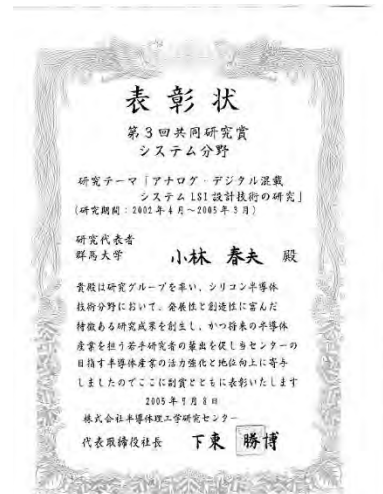 表彰状
第3回共同研究賞
システム分野
研究テーマ「アナログ・デジタル混載
システムLSI設計技術の研究」
(研究期間：2002年4月～2005年3月)
研究代表者
群馬大学
小林 春夫 殿
貴殿は研究グループを率い、シリコン半導体
技術分野において、発展性と創造性に富んだ
特徴ある研究成果を創生し、かつ将来の半導体
産業を担う若手研究者の輩出を促し当センターの
目指す半導体産業の活力強化と地位向上に寄与
しましたのでここに副賞とともに表彰いたします
2005年7月8日
株式会社半導体理工学研究センター
代表取締役社長 下東 勝博